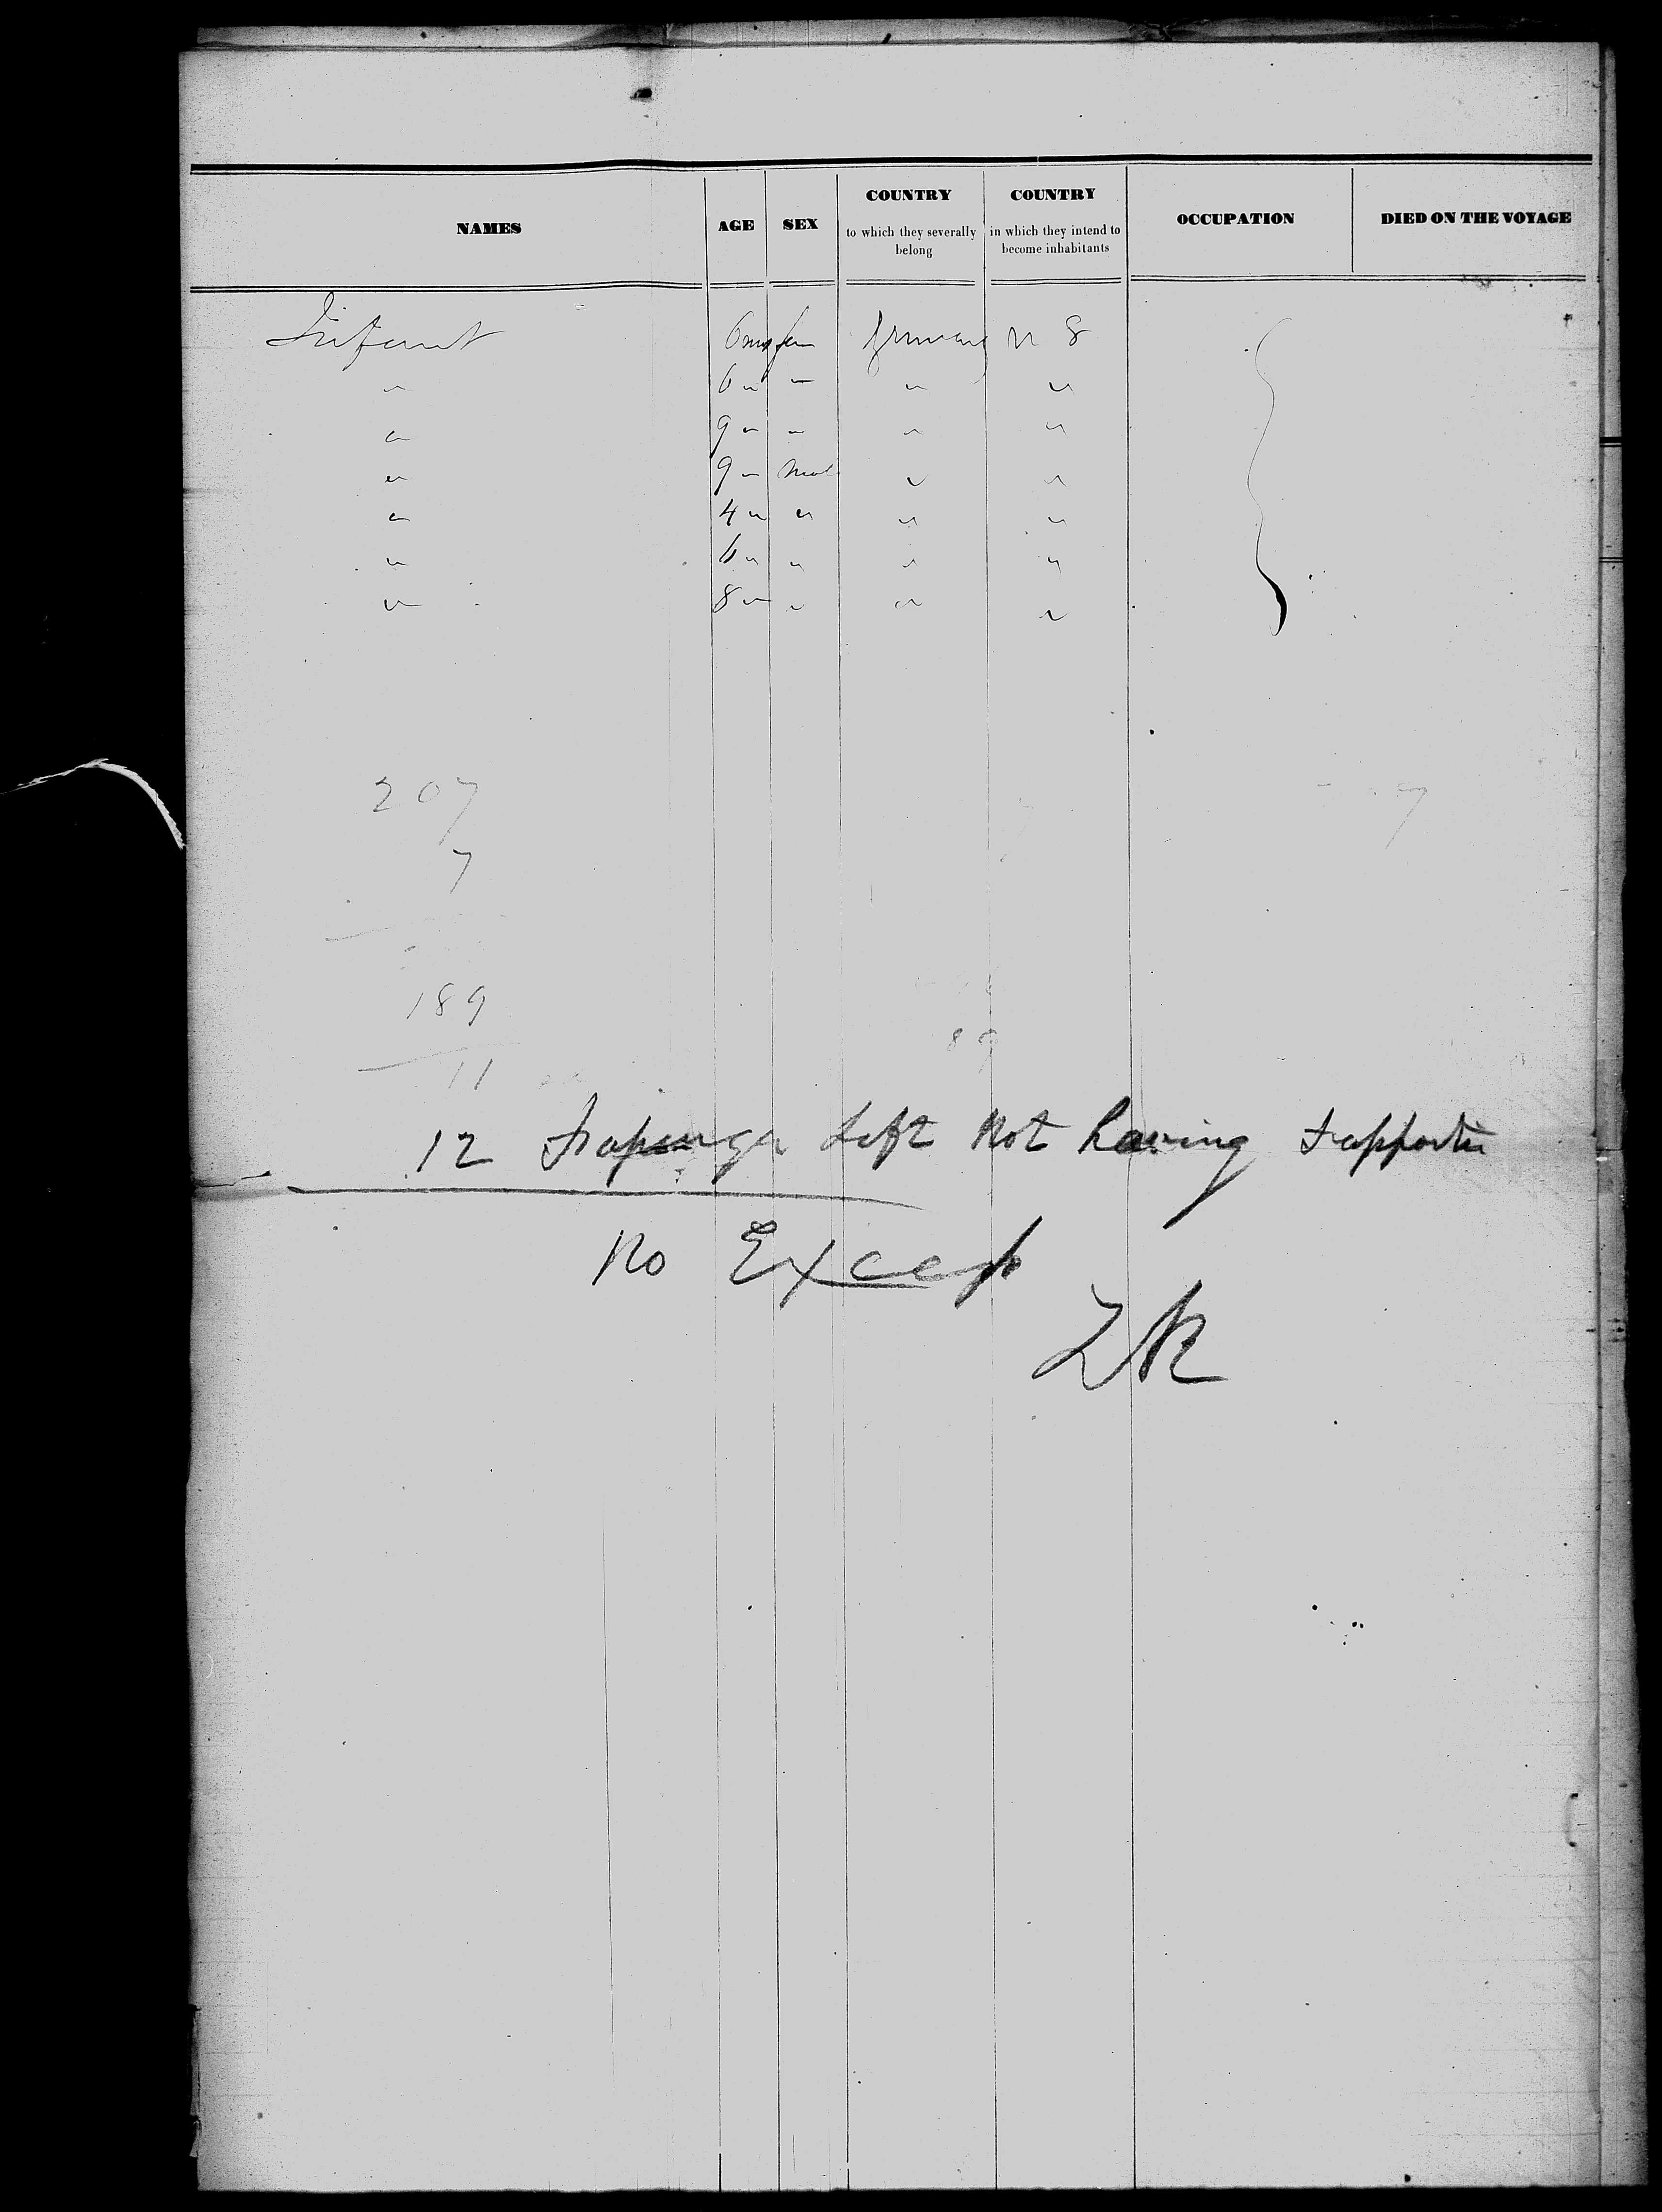 NAMES AGE SEX COUNTRY to which they severally belong COUNTRY in which they intend to become inhabitants OCCUPATION DIED ON THE VOYAGE
Infant 6 mos fem Germany U S
" 6 " " " "
" 9 " " " "
" 9 " Mal " "
" 4 " " " "
" 6 " " " "
" 8 " " " "
207
7
189
89
11
12 Left Not having
No Except